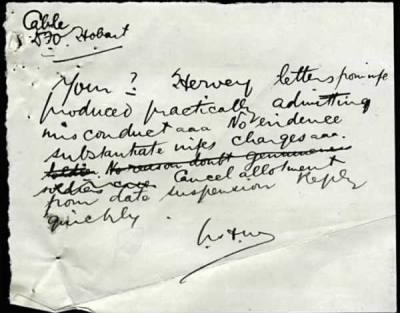 Cable
DFO Hobart
Your ? Hervey letters from wife
produced practically admitting
misconduct aaa No evidence
substantiate wifes charges aaa
No reason doubt genuineness
soldiers case Cancel allotment
from date suspension Reply
quickly.